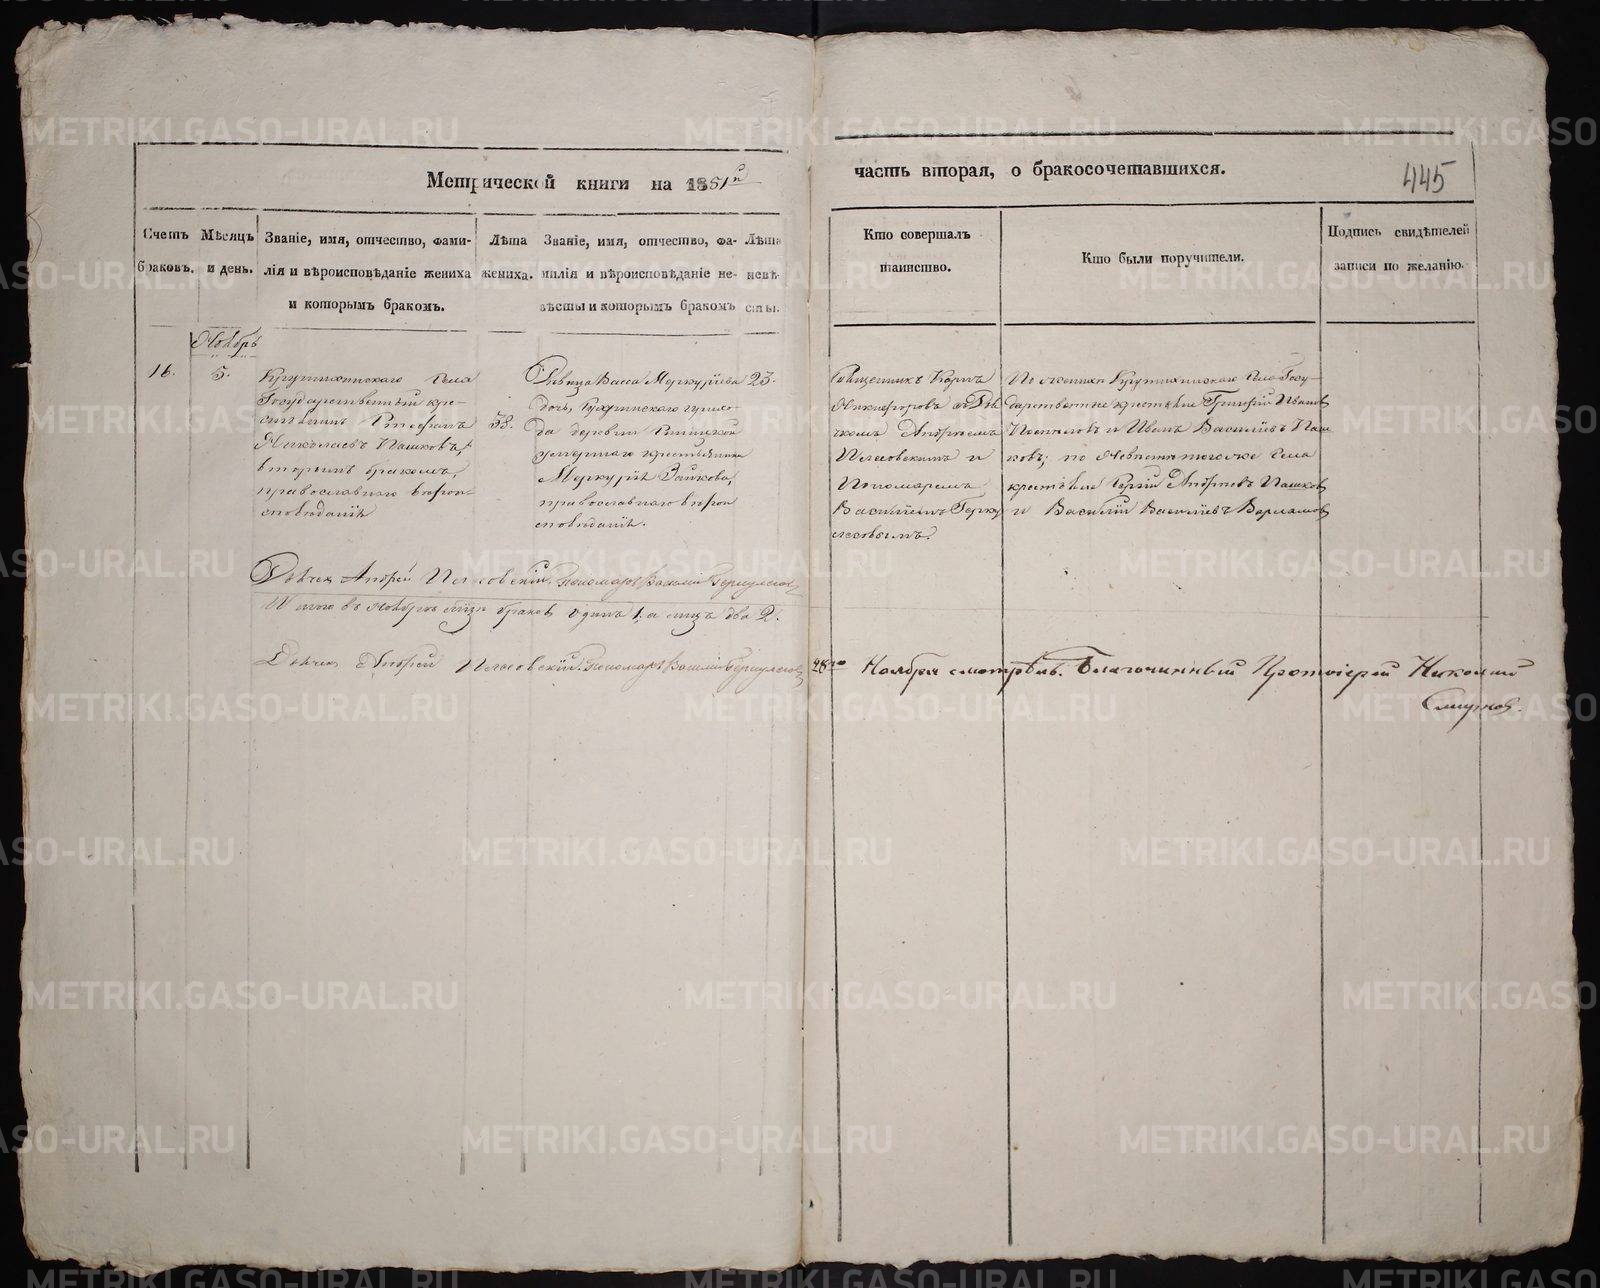 Метрической книги на 1851й
часть вторая, о бракосочетавшихся.
445
Счетъ браковъ.
Мѣсяцъ и день.
Званіе, имя, отчество, фами-
лія и вѣроисповѣданіе жениха
и которымъ бракомъ.
Лѣта
жениха.
Званіе, имя, отчество, фа-
милія и вѣроисповѣданіе не-
вѣсты и которымъ бракомъ
Лѣта
невѣ-
сты.
Кто совершалъ
таинство.
Кто были поручители.
Подпись свидѣтелей
записи по желанію.
Ноябрь
16.
5.
Крутихинскаго села
Государственный кре-
стьянинъ Стефанъ
Николаевъ Пашковъ,
вторымъ бракомъ,
православнаго вѣрои-
сповѣданія
38.
Девица Васса Меркуріева
дочь,
да деревни
умершаго крестьянина
Меркурія Зайкова,
православнаго вѣрои
сповѣданія.
23.
Священникъ
Никифоровъ съ Дья
чкомъ Андреемъ
и
Пономаремъ
Василіемъ Герку
лесовымъ.
По женихѣ Крутихинскаго села Госу-
дарственные крестьяне Григорій Иванов
и Иванъ Василіевъ Паш
ковъ; по Невѣстѣ тогоже села
крестьяне Сергій Андреевъ Пашков
и Василій Василіевъ Варламов
Дьячек Андрей Пономарь Василій Геркулесов
Итого въ Ноябрѣ м҃цѣ браков один 1. а лицъ два 2.
Дьячек Андрей Пономарь Василій Геркулесов
28го Ноября смотрѣлъ. Благочинный Протоіерей Николай
Смирнов.
METRIKI.GASO-URAL.RU